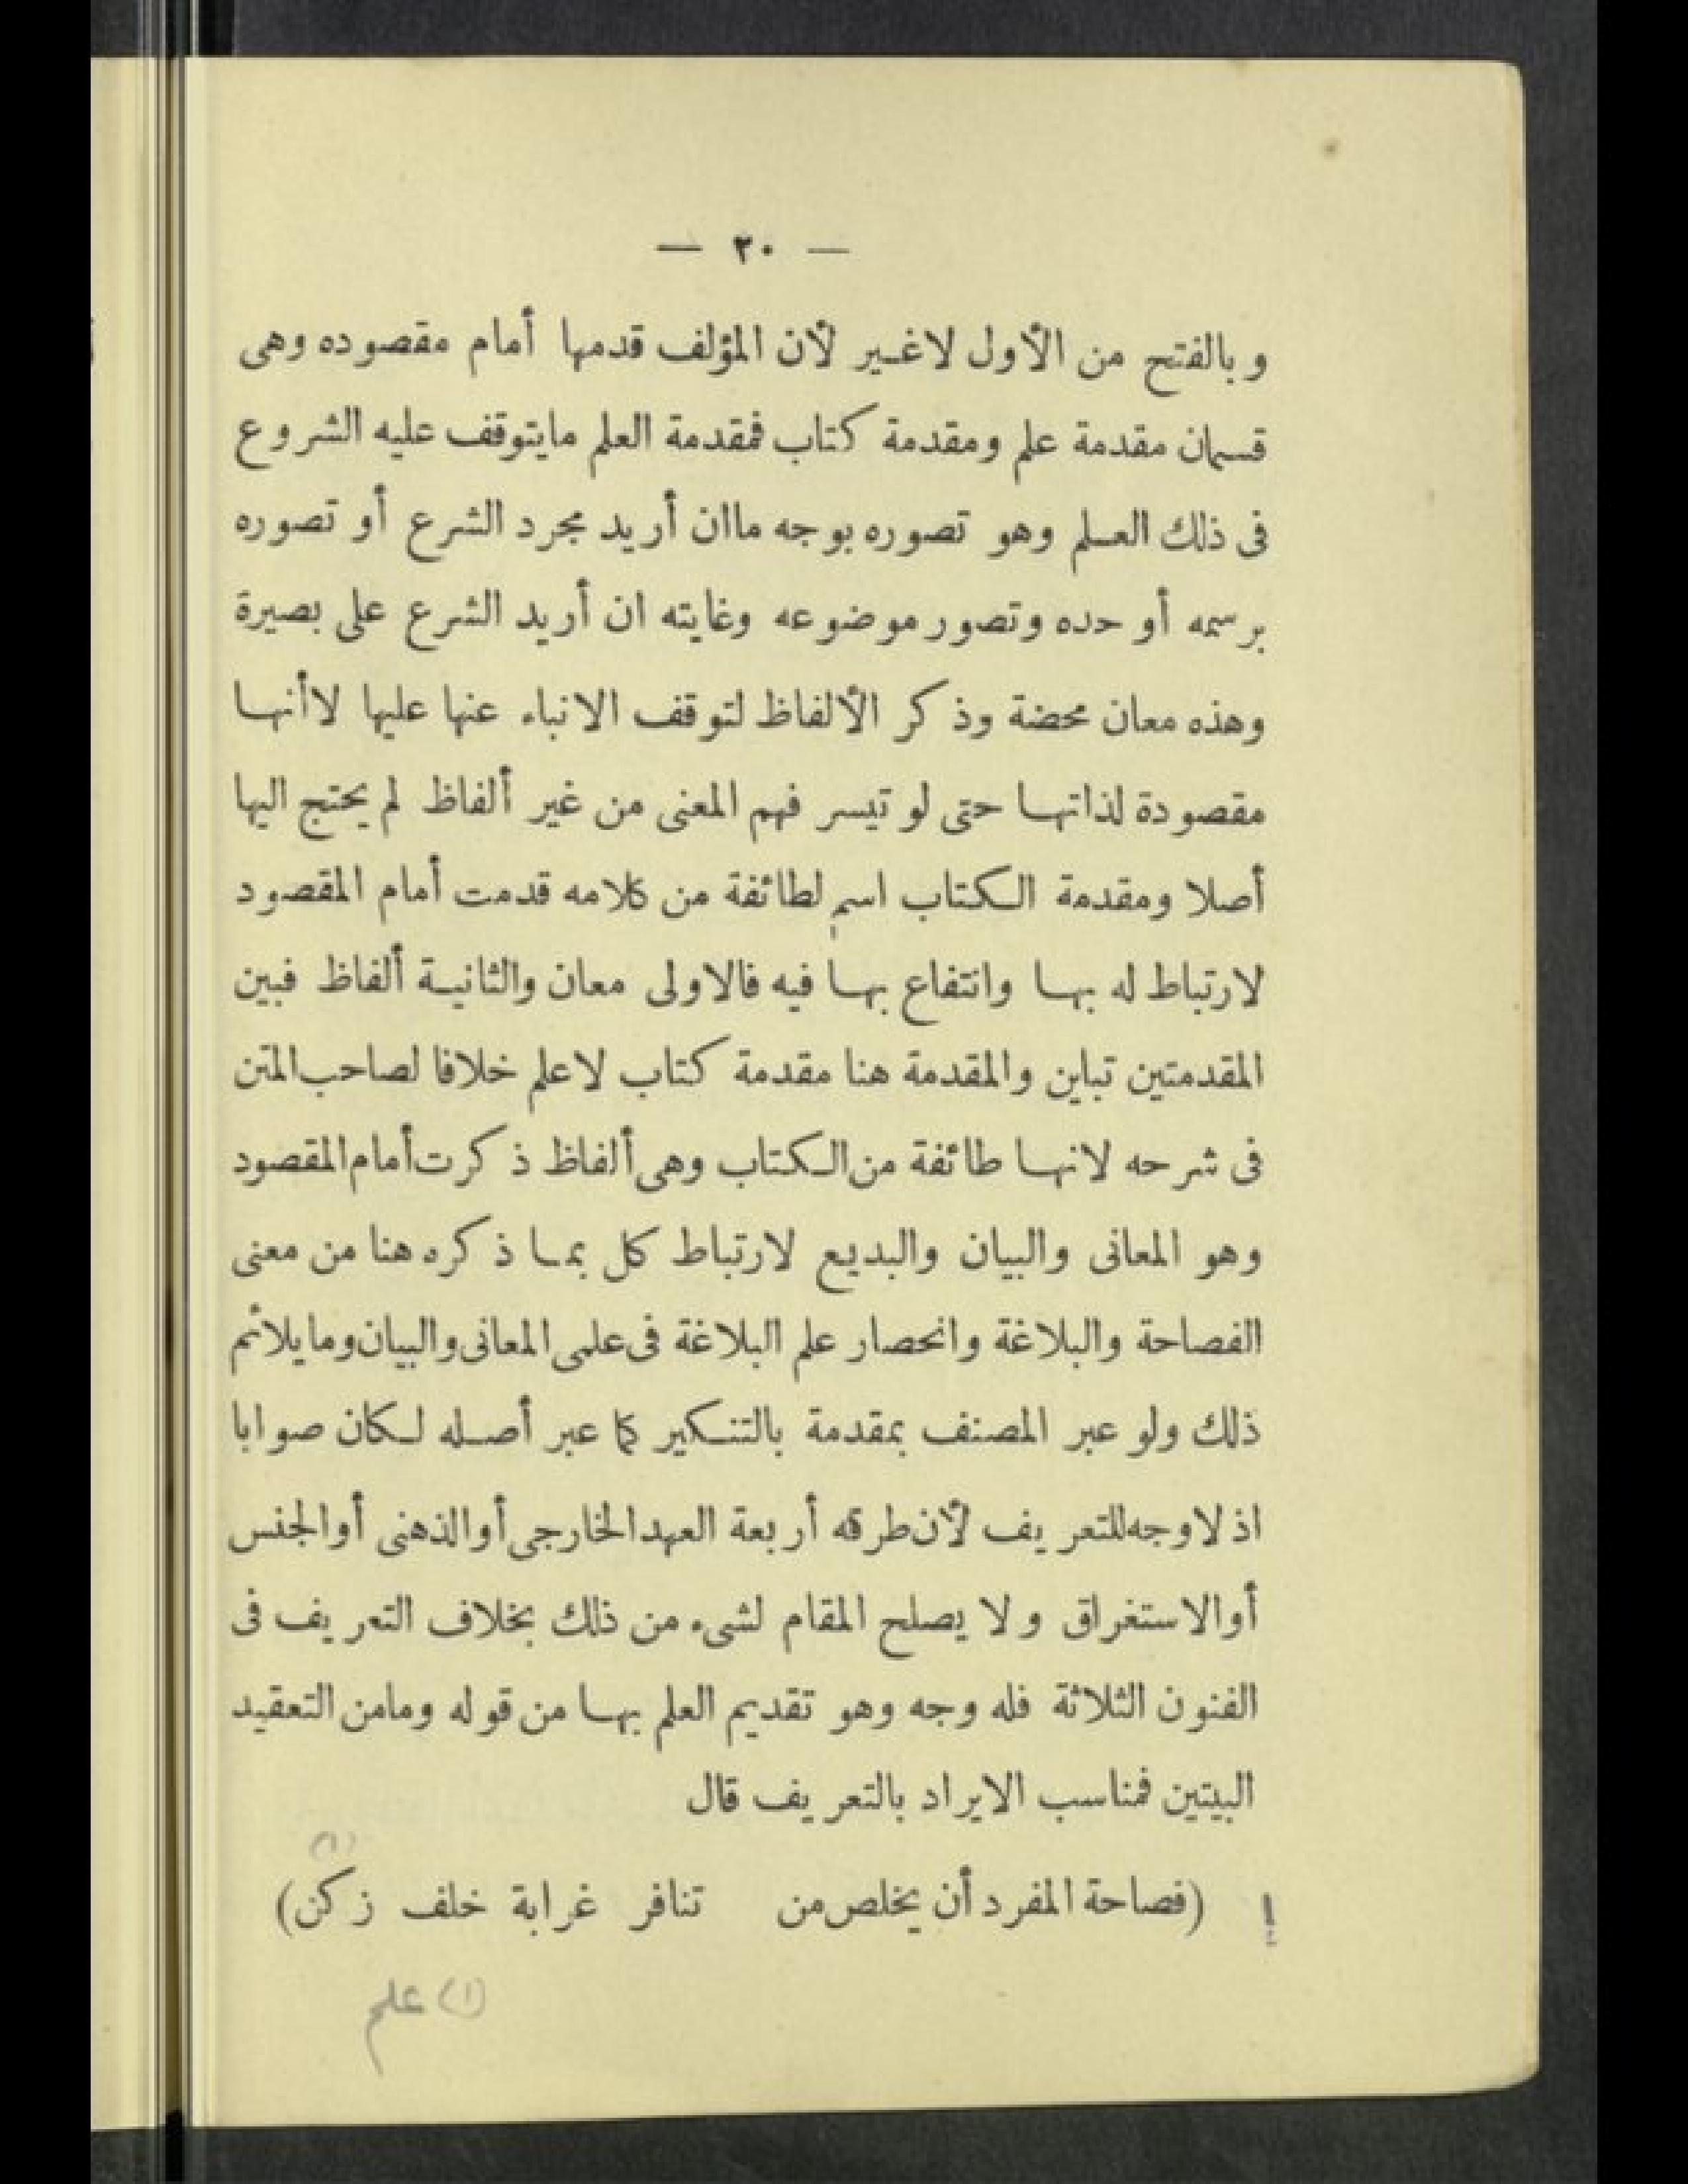 — ٢٠ —
وبالفتح من الأول لاغير لأن المؤلف قدمها أمام مقصوده وهى
قسمان مقدمة علم ومقدمة كتاب فمقدمة العلم مايتوقف عليه الشروع
فى ذلك العلم وهو تصوره بوجه ماان أريد مجرد الشرع أو تصوره
برسمه أو حده وتصور موضوعه وغايته ان أريد الشرع على بصيرة
وهذه معان محضة وذكر الألفاظ لتوقف الانباء عنها عليها لاأنها
مقصودة لذاتها حتى لو تيسر فهم المعنى من غير ألفاظ لم يحتج اليها
أصلا ومقدمة الكتاب اسم لطائفة من كلامه قدمت أمام المقصود
لارتباط له بها وانتفاع بها فيه فالاولى معان والثانية ألفاظ فبين
المقدمتين تباين والمقدمة هنا مقدمة كتاب لاعلم خلافا لصاحب المتن
فى شرحه لانها طائفة من الكتاب وهى ألفاظ ذكرت أمام المقصود
وهو المعانى والبيان والبديع لارتباط كل بما ذكره هنا من معنى
الفصاحة والبلاغة وانحصار علم البلاغة فى علمى المعانى والبيان ومايلائم
ذلك ولو عبر المصنف بمقدمة بالتنكير كما عبر أصله لكان صوابا
اذ لاوجه للتعريف لأن طرقه أربعة العهد الخارجى أوالذهنى أوالجنس
أوالاستغراق ولا يصلح المقام لشىء من ذلك بخلاف التعريف فى
الفنون الثلاثة فله وجه وهو تقديم العلم بها من قوله ومامن التعقيد
البيتين فمناسب الايراد بالتعريف قال
(١)
(فصاحة المفرد أن يخلص من تنافر غرابة خلف زكن)
(١) علم